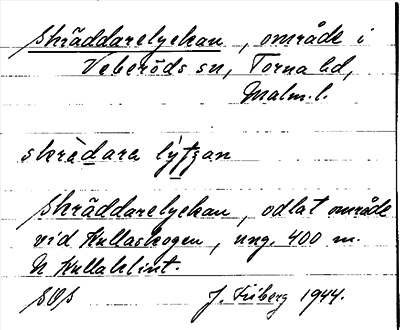 Skräddarelyckan, område i
Veberöds sn, Torna hd,
Malm. l.
skrädara lýtjan
Skräddarelyckan, odlat område
vid Kullaskogen, ung. 400 m.
N Kullaklint.
J. Friberg 1944.